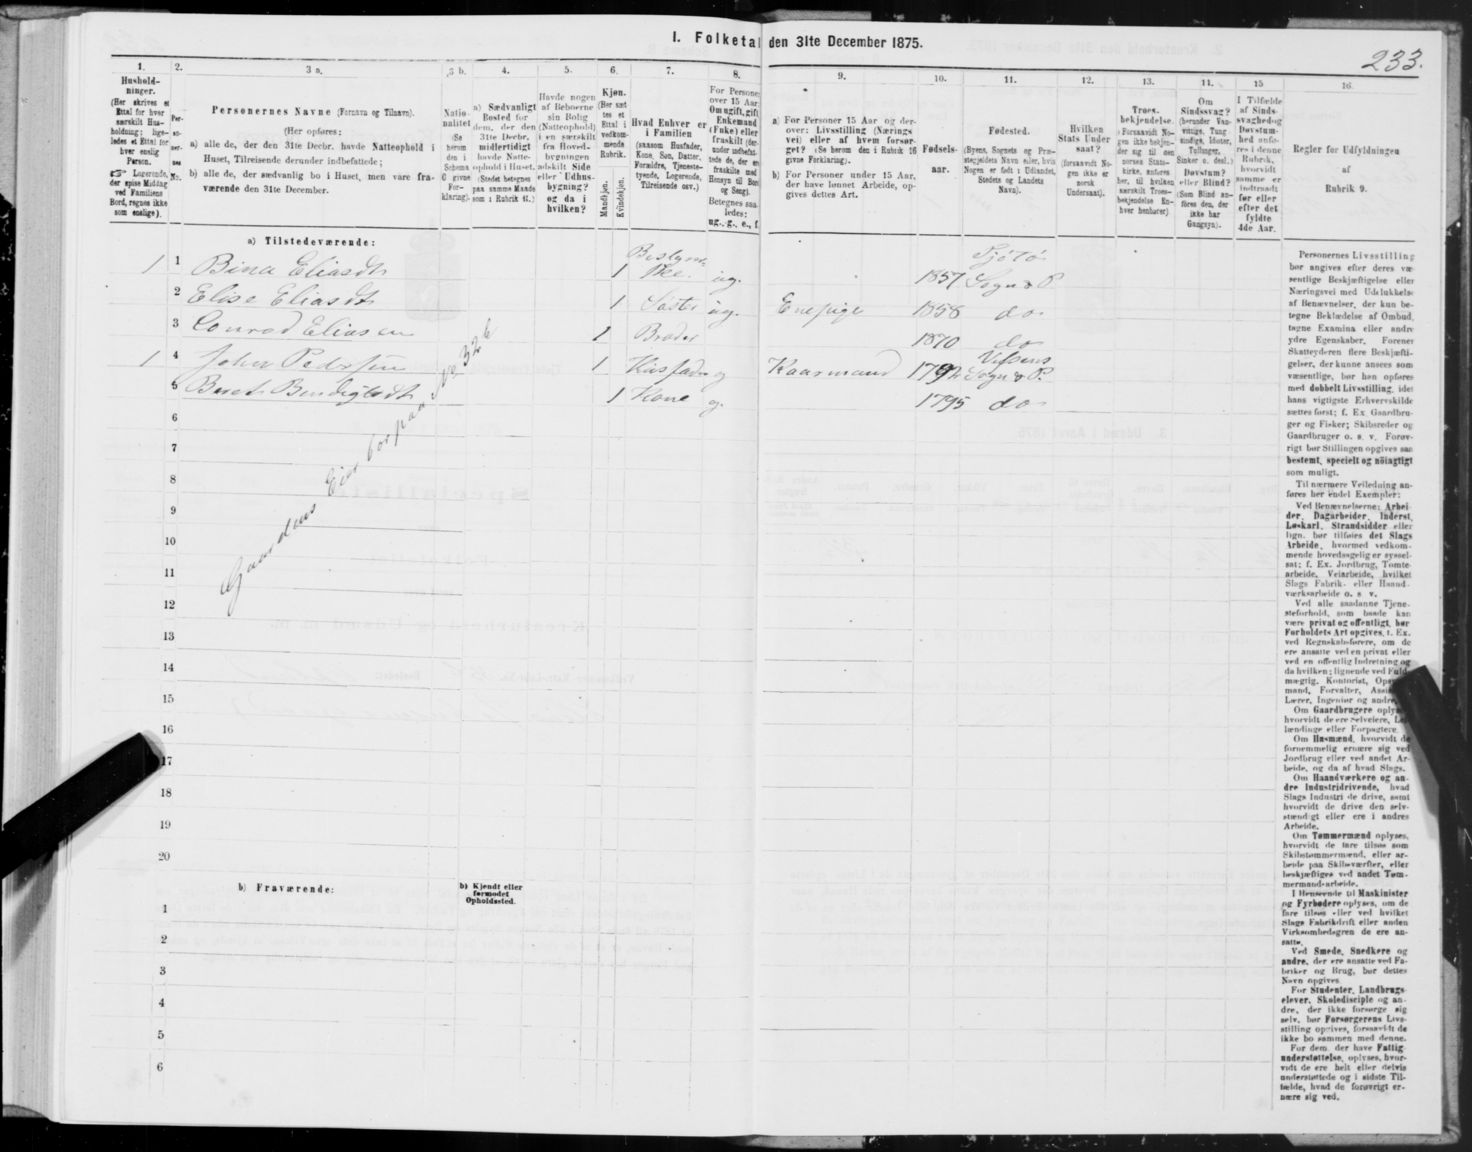 I. Folketal den 31te December 1875.
233.
1.
Husholdninger.
(Her skrives et Ettal for hver særskilt Husholdning; ligeledes et Ettal for hver enslig Person.
☞ Logerende, der spise Middag ved Familiens Bord, regnes ikke som enslige).
2.
Personernes No.
3 a.
Personernes Navne (Fornavn og Tilnavn).
(Her opføres:
a) alle de, der den 31te Decbr. havde Natteophold i Huset, Tilreisende derunder indbefattede;
b) alle de, der sædvanlig bo i Huset, men vare fraværende den 31te December.
3 b.
Nationalitet
4.
a) Sædvanligt Bosted for dem, der den 31te Decbr. midlertidigt havde Natteophold i Huset.
(Stedet betegnes paa samme Maade som i Rubrik 11.)
5.
Havde nogen af Beboerne sin Bolig (Natteophold) i en særskilt fra Hovedbygningen adskilt Side eller Udhusbygning? og da i hvilken?
6.
Kjøn.
(Her sættes et Ettal i vedkommende Rubrik.
Mandkjøn.
Kvindekjøn.
7.
Hvad Enhver er i Familien
(saasom Husfader, Kone, Søn, Datter, Forældre, Tjenestetyende, Logerende, Tilreisende osv.)
8.
For Personer over 15 Aar: Om ugift, gift, Enkemand (Enke) eller fraskilt
Betegnes saaledes:
ug., g., e., f.
9.
a) For Personer 15 Aar og derover: Livsstilling (Næringsvei) eller af hvem forsørget? (Se herom den i Rubrik 16 givne Forklaring).
b) For Personer under 15 Aar, der have lønnet Arbeide, opgives dettes Art.
10.
Fødselsaar.
11.
Fødested.
(Byens, Sognets og Præstegjeldets Navn eller, hvis Nogen er født i Udlandet, Stedets og Landets Navn).
12.
Hvilken Stats Undersaat?
(forsaavidt Nogen ikke er norsk Undersaat).
13.
Troesbekjendelse.
(Forsaavidt Nogen ikke bekjender sig til den norske Statskirke, anføres her, til hvilken særskilt Troesbekjendelse Enhver henhører).
14.
Om Sindssvag? (herunder Vanvittige, Tungsindige, Idioter, Tullinger, Sinker o. desl.) Døvstum? eller Blind?
(Som Blind anføres den, der ikke har Gangsyn).
15
I Tilfælde af Sindssvaghed og Døvstumhed anføres i denne Rubrik, hvorvidt samme er indtraadt før eller efter det fyldte 4de Aar.
16.
Regler for Udfyldningen af Rubrik 9.
a) Tilstedeværende:
1 1 Bina Eliasdt 1 Bestyrer ug. 1857 Tjøtø Sogn & P
2 Elise Eliasdt 1 Søster ug. Enepige 1858 do.
3 Conrad Eliassen 1 Broder 1870 do
1 4 John Pedersen 1 Husfader g Kaarmand 1792 Vefsens Sogn & P.
5 Beret Bendigtsdt 1 Kone g. 1795 do.
6
7
8
9
10
11
12
13
14
15
16
17
18
19
20
Gaardens Eier bor paa No 326
b) Fraværende:
b) Kjendt eller formodet Opholdssted.
1
2
3
4
5
6
Personernes Livsstilling bør angives efter deres væsentlige Beskjæftigelse eller Næringsvei med Udelukkelse af Benævnelser, der kun betegne Beklædelse af Ombud, tagne Examina eller andre ydre Egenskaber. Forener Skatteyderen flere Beskjæftigelser, der kunne ansees som væsentlige, bør han opføres med dobbelt Livsstilling, idet hans vigtigste Erhvervskilde sættes først; f. Ex. Gaardbruger og Fisker; Skibsreder og Gaardbruger o. s. v. Forøvrigt bør Stillingen opgives saa bestemt, specielt og nöiagtigt som muligt.
Til nærmere Veiledning anføres her endel Exempler:
Ved Benævnelserne: Arbeider, Dagarbeider, Inderst, Løskarl, Strandsidder eller lign. bør tilføies det Slags Arbeide, hvormed vedkommende hovedsagelig er sysselsat; f. Ex. Jordbrug, Tomtearbeide, Veiarbeide, hvilket Slags Fabrik- eller Haandværksarbeide o. s. v.
Ved alle saadanne Tjenesteforhold, som baade kan være privat og offentligt, bør Forholdets Art opgives, f. Ex. ved Regnskabsførere, om de ere ansatte ved en privat eller ved en offentlig Indretning og da hvilken; lignende ved Fuldmægtig, Kontorist, Opsynsmand, Forvalter, Assistent, Lærer, Ingeniør og andre.
Om Gaardbrugere oplyses, hvorvidt de ere Selveiere, Leilændinge eller Forpagtere.
Om Husmænd, hvorvidt de fornemmelig ernære sig ved Jordbrug eller ved andet Arbeide, og da af hvad Slags.
Om Haandværkere og andre Industridrivende, hvad Slags Industri de drive, samt hvorvidt de drive den selvstændigt eller ere i andres Arbeide.
Om Tømmermænd oplyses, hvorvidt de fare tilsøs som Skibstømmermænd, eller arbeide paa Skibsværfter, eller beskjæftiges ved andet Tømmermandsarbeide.
I Henseende til Maskinister og Fyrbødere oplyses, om de fare tilsøs eller ved hvilket Slags Fabrikdrift eller anden Virksomhedsgren de ere ansatte.
Ved Smede, Snedkere og andre, der ere ansatte ved Fabriker og Brug, bør dettes Navn opgives
For Studenter, Landbrugselever, Skoledisciple og andre, der ikke forsørge sig selv, bør Forsørgerens Livsstilling opgives, forsaavidt de ikke bo sammen med denne.
For dem, der have Fattigunderstøttelse, oplyses, hvorvidt de ere helt eller delvis understøttede og i sidste Tilfælde, hvad de forøvrigt ernære sig ved.